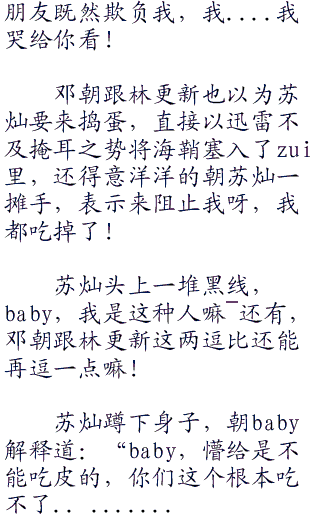 朋友既然欺负我，我....我
哭给你看！
邓朝跟林更新也以为苏
灿要来捣蛋，直接以迅雷不
及掩耳之势将海鞘塞入了zui
里，还得意洋洋的朝苏灿一
摊手，表示来阻止我呀，我
都吃掉了！
苏灿头上一堆黑线，
baby，我是这种人嘛¯还有，
邓朝跟林更新这两逗比还能
再逗一点嘛！
苏灿蹲下身子，朝baby
解释道：“baby，懵给是不
能吃皮的，你们这个根本吃
不了.. .......